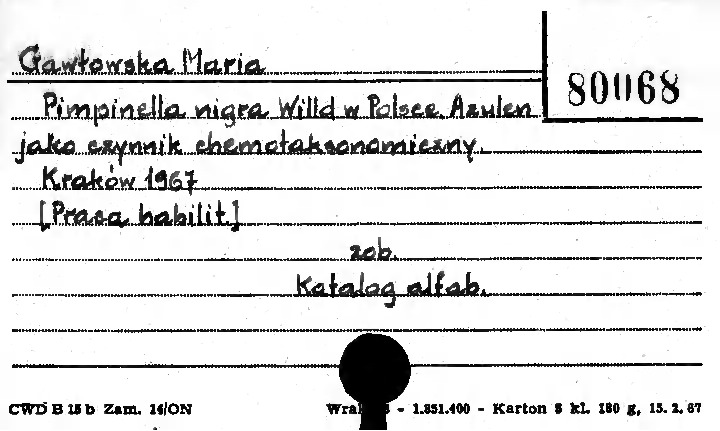 Gawłowska Maria
80068
Pimpinella nigra Willd w Polsce. Azulen
jako czynnik chemotaksonomiczny.
Kraków 1967
[Praca habilit.]
zob.
Katalog alfab.
CWD B 15 b Zam. 14/ON - 1.851.400 - Karton 8 kl. 180 g, 15. 2. 67